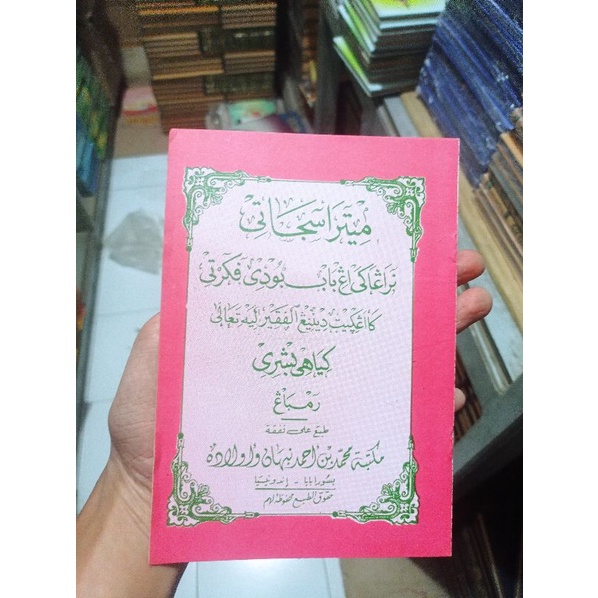 ميترا سجاتي
نراڠاكي ڠ باب بودي فكرتي
كااڠكيت دينيڠ الفقير ليه تعالى
كياهي بشري
رمباڠ
طبع على نفقة
مكتبة محمد بن احمد نبهان واولاده
بسورابايا - إندونيسيا
حقوق الطبع محفوظة لهم